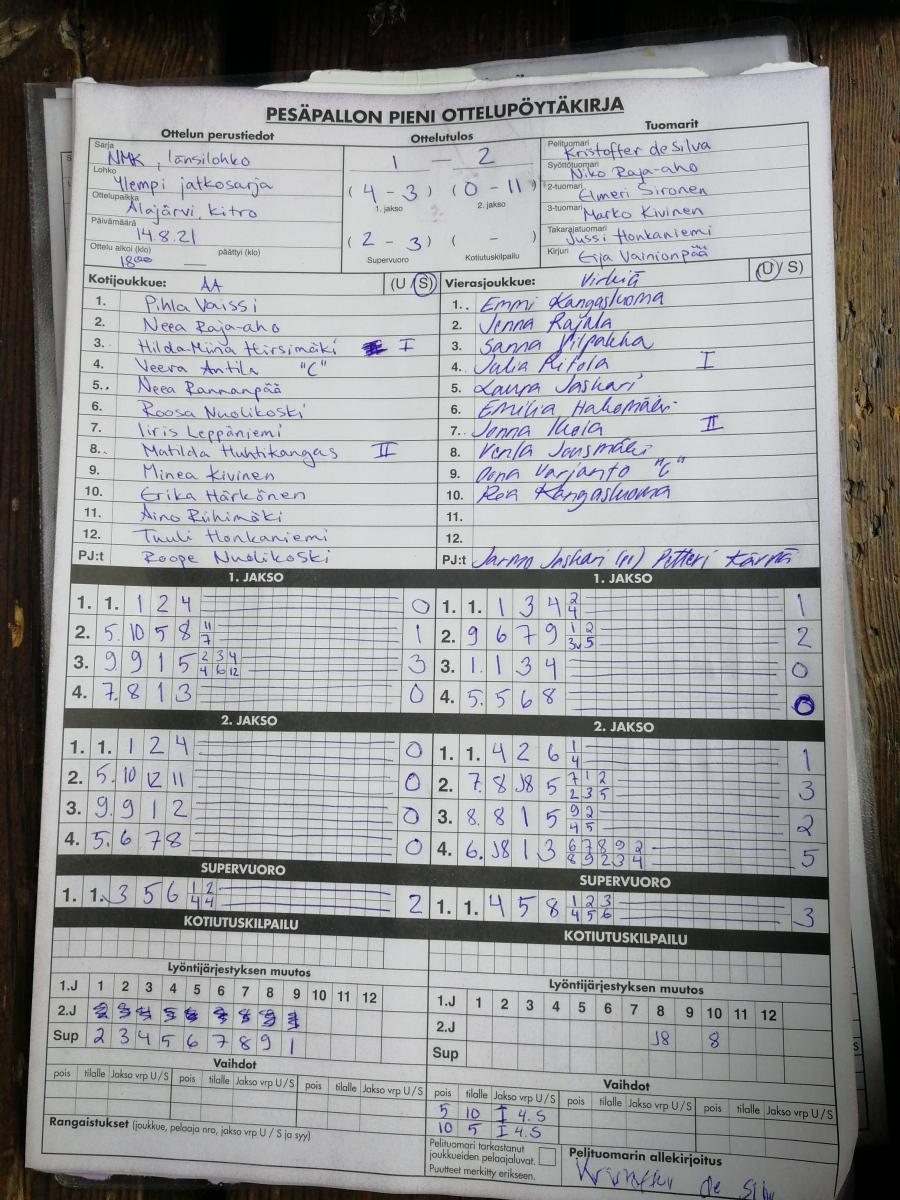 PESÄPALLON PIENI OTTELUPÖYTÄKIRJA
Ottelun perustiedot
Sarja NMK, länsilohko
Lohko Ylempi jatkosarja
Ottelupaikka Alajärvi, kitro
Päivämäärä 14.8.21
Ottelu alkoi (klo) 18:00 päättyi (klo) —
Ottelutulos
1 — 2
( 4 - 3 ) ( 0 - 11 )
1. jakso 2. jakso
( 2 - 3 ) ( - )
Supervuoro Kotiutuskilpailu
Tuomarit
Pelituomari Kristoffer de Silva
Syöttötuomari Niko Raja-aho
2-tuomari Elmeri Sironen
3-tuomari Marko Kivinen
Takarajatuomari Jussi Honkaniemi
Kirjuri Eija Vainionpää
Kotijoukkue: AA (U / S)
1. Pihla Vaissi
2. Neea Raja-aho
3. Hilda-Miina Hirsimäki I
4. Veera Antila "C"
5. Neea Rannanpää
6. Roosa Nuolikoski
7. Iiris Leppäniemi
8. Matilda Huhtikangas II
9. Minea Kivinen
10. Erika Härkönen
11. Aino Riihimäki
12. Tuuli Honkaniemi
PJ:t Roope Nuolikoski
Vierasjoukkue: Virkiä (U / S)
1. Emmi Kangasluoma
2. Jenna Rajala
3. Sanna Vilpakka
4. Julia Ritola I
5. Laura Jaskari
6. Emilia Hakomäki
7. Jonna Ikola II
8. Venla Jousmäki
9. Oona Varjanto "C"
10. Rea Kangasluoma
11.
12.
PJ:t Jarmo Jaskari (II) Petteri Kärnä
1. JAKSO
1. 1. 1 2 4 0
2. 5. 10 5 8 11 1
7
3. 9. 9 1 5 2 3 4 3
4 6 12
4. 7. 8 1 3 0
1. JAKSO
1. 1. 1 3 4 2 1
4
2. 9 6 7 9 1 2 2
3v 5
3. 1. 1 3 4 0
4. 5. 5 6 8 0
2. JAKSO
1. 1. 1 2 4 0
2. 5. 10 12 11 0
3. 9. 9 1 2 0
4. 5. 6 7 8 0
2. JAKSO
1. 1. 4 2 6 1 1
4
2. 7. 8 J8 5 7 1 2 3
2 3 5
3. 8. 8 1 5 9 2 2
4 5
4. 6. J8 1 3 6 7 8 9 2 5
8 9 2 3 4
SUPERVUORO
1. 1. 3 5 6 1 2 2
4 4
SUPERVUORO
1. 1. 4 5 8 1 2 3 3
4 5 6
KOTIUTUSKILPAILU
KOTIUTUSKILPAILU
Lyöntijärjestyksen muutos
1.J 1 2 3 4 5 6 7 8 9 10 11 12
2.J
Sup 2 3 4 5 6 7 8 9 1
Lyöntijärjestyksen muutos
1.J 1 2 3 4 5 6 7 8 9 10 11 12
2.J J8 8
Sup
Vaihdot
pois tilalle Jakso vrp U / S pois tilalle Jakso vrp U / S pois tilalle Jakso vrp U / S
Rangaistukset (joukkue, pelaaja nro, jakso vrp U / S ja syy)
Vaihdot
pois tilalle Jakso vrp U / S pois tilalle Jakso vrp U / S pois tilalle Jakso vrp U / S
5 10 I 4.S
10 5 I 4.S
Pelituomari tarkastanut
joukkueiden pelaajaluvat.
Puutteet merkitty erikseen.
Pelituomarin allekirjoitus